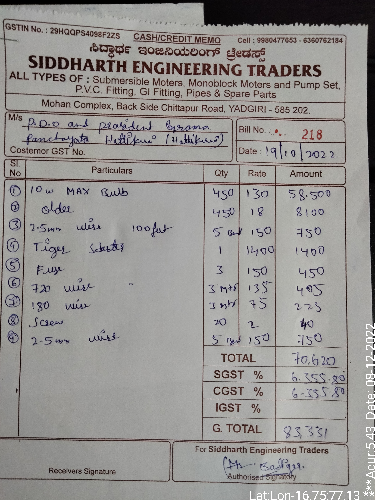 GSTIN No. : 29HQQPS4098F2ZS CASH/CREDIT MEMO Cell : 9980477653 - 6360762184
ಸಿದ್ಧಾರ್ಥ ಇಂಜಿನಿಯರಿಂಗ್ ಟ್ರೇಡರ್ಸ್
SIDDHARTH ENGINEERING TRADERS
ALL TYPES OF : Submersible Moters, Monoblock Moters and Pump Set,
P.V.C. Fitting, GI Fitting, Pipes & Spare Parts
Mohan Complex, Back Side Chittapur Road, YADGIRI - 585 202.
M/s P.D.O and president Grama
Panchayata
Costemor GST No.
Bill No. 218
Date : 19/10/2022
Sl No Particulars Qty Rate Amount
1 10w MAX Bulb 450 130 58,500
2 Older 450 18 8100
3 2.5mm wire 100fat 5 150 750
4 Tiger 1 1400 1400
5 Fuse 3 150 450
6 750 wire 3 mtr 135 405
7 180 wire 3 mtr 75 225
8 Screw 20 2 40
9 2-5mm wire 5 150 750
TOTAL 70,620
SGST % 6.355.80
CGST % 6-355.80
IGST %
G. TOTAL 83,331
For Siddharth Engineering Traders
Receivers Signature
Authorised Signatory
Lat:Lon-16.7577,77.13 ***Acur:5.43 Date: 08-12-2022